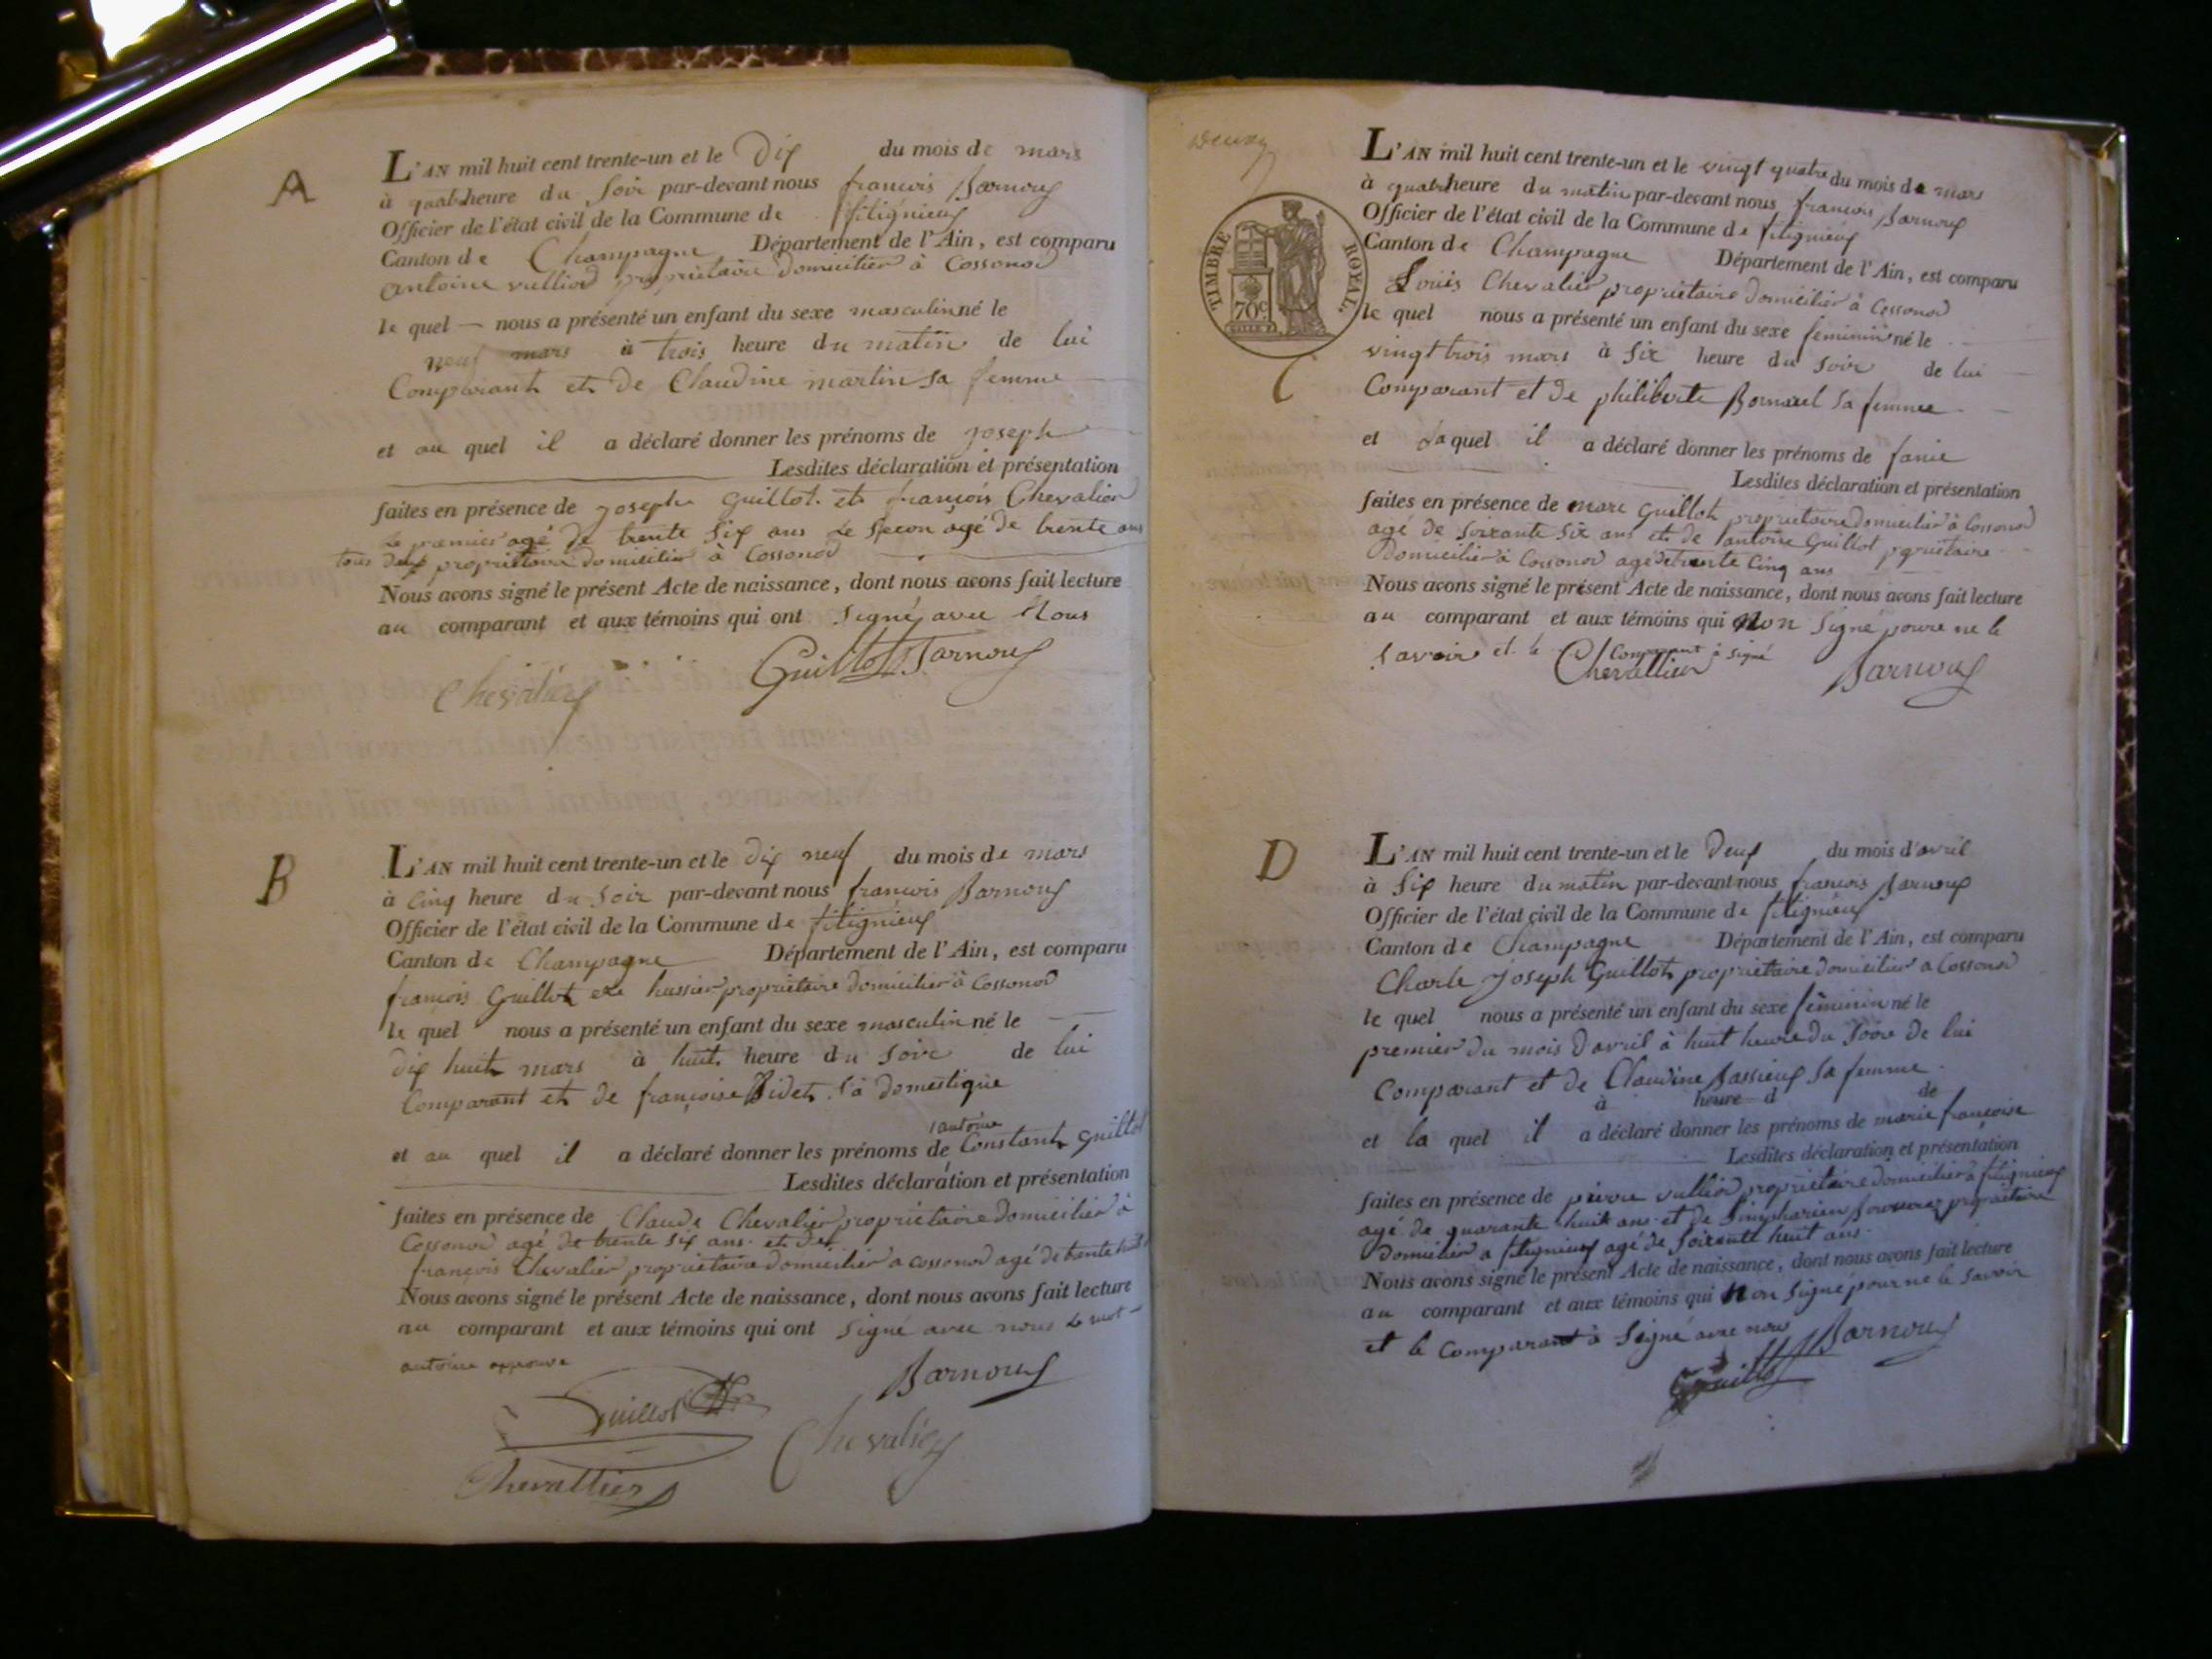 A
L'AN mil huit cent trente-un et le Dix du mois de mars
à quatr heure du soir par-devant nous francois Barnoux
Officier de l'état civil de la Commune de fitignieux
Canton de Champagne Département de l'Ain, est comparu
antoine vulliod proprietaire domicilier à Cossonod
le quel — nous a présenté un enfant du sexe masculin né le
neuf mars à trois heure du matin de lui
Comparant et de Claudine martin sa femme
et au quel il a déclaré donner les prénoms de joseph
Lesdites déclaration et présentation
faites en présence de joseph guillot et francois Chevalier
Le premier agé de trente six ans Le secon âgé de trente ans
tous deux proprietaire domicilier à Cossonod
Nous avons signé le présent Acte de naissance, dont nous avons fait lecture
au comparant et aux témoins qui ont signé avec Nous
Chevalier Guillot Barnoux
B
L'AN mil huit cent trente-un et le dix neuf du mois de mars
à Cinq heure du soir par-devant nous francois Barnoux
Officier de l'état civil de la Commune de fitignieux
Canton de Champagne Département de l'Ain, est comparu
francois Guillot exe hussier proprietaire domicilier à Cossonod
le quel nous a présenté un enfant du sexe masculin né le
dix huit mars à huit heure du soir de lui
Comparant et de françoise Bidet sà domestique
antoine
et au quel il a déclaré donner les prénoms de Constant guillot
Lesdites déclaration et présentation
faites en présence de Claude Chevalier proprietaire domicilier à
Cossonod agé de trente six ans et de
françois Chevalier proprietaire domicilier a cossonod agé de trente huit
Nous avons signé le présent Acte de naissance, dont nous avons fait lecture
au comparant et aux témoins qui ont signé avec nous Le mot
antoine approuvé
Guillot Barnoux
Chevallier Chevalier
Deux
TIMBRE ROYAL.
70c
C
L'AN mil huit cent trente-un et le vingt quatre du mois de mars
à quatr heure du matin par-devant nous francois Barnoux
Officier de l'état civil de la Commune de fitignieux
Canton de Champagne Département de l'Ain, est comparu
Louis Chevalier proprietaire domicilier à Cossonod
le quel nous a présenté un enfant du sexe feminin né le
vingt trois mars à six heure du soir de lui
Comparant et de philiberte Bornarel sa femme
et laquel il a déclaré donner les prénoms de fanie
Lesdites déclaration et présentation
faites en présence de marc Guillot proprietaire domicilier à Cossonod
agé de soixante six ans et de antoine Guillot proprietaire
Domicilier à Cossonod agé de trente Cinq ans
Nous avons signé le présent Acte de naissance, dont nous avons fait lecture
au comparant et aux témoins qui non signé poure ne le
savoir et le Comparant à signé
Chevallier Barnoux
D
L'AN mil huit cent trente-un et le deux du mois d'avril
à six heure du matin par-devant nous francois Barnoux
Officier de l'état civil de la Commune de fitignieux
Canton de Champagne Département de l'Ain, est comparu
Charle joseph Guillot proprietaire domicilier a Cossonod
le quel nous a présenté un enfant du sexe féminin né le
premier du mois d'avril à huit heure du soire de lui
Comparant et de Claudine Bassieux sa femme
à heure d de
et la quel il a déclaré donner les prénoms de marie françoise
Lesdites déclaration et présentation
faites en présence de pierre vulliod proprietaire domicilier à fitignieux
agé de quarante huit ans et de proprietaire
domicilier a fitignieux agé de soixante huit ans
Nous avons signé le présent Acte de naissance, dont nous avons fait lecture
au comparant et aux témoins qui non signé pour ne le savoir
et le Comparant à signé avec nous
Guillot Barnoux